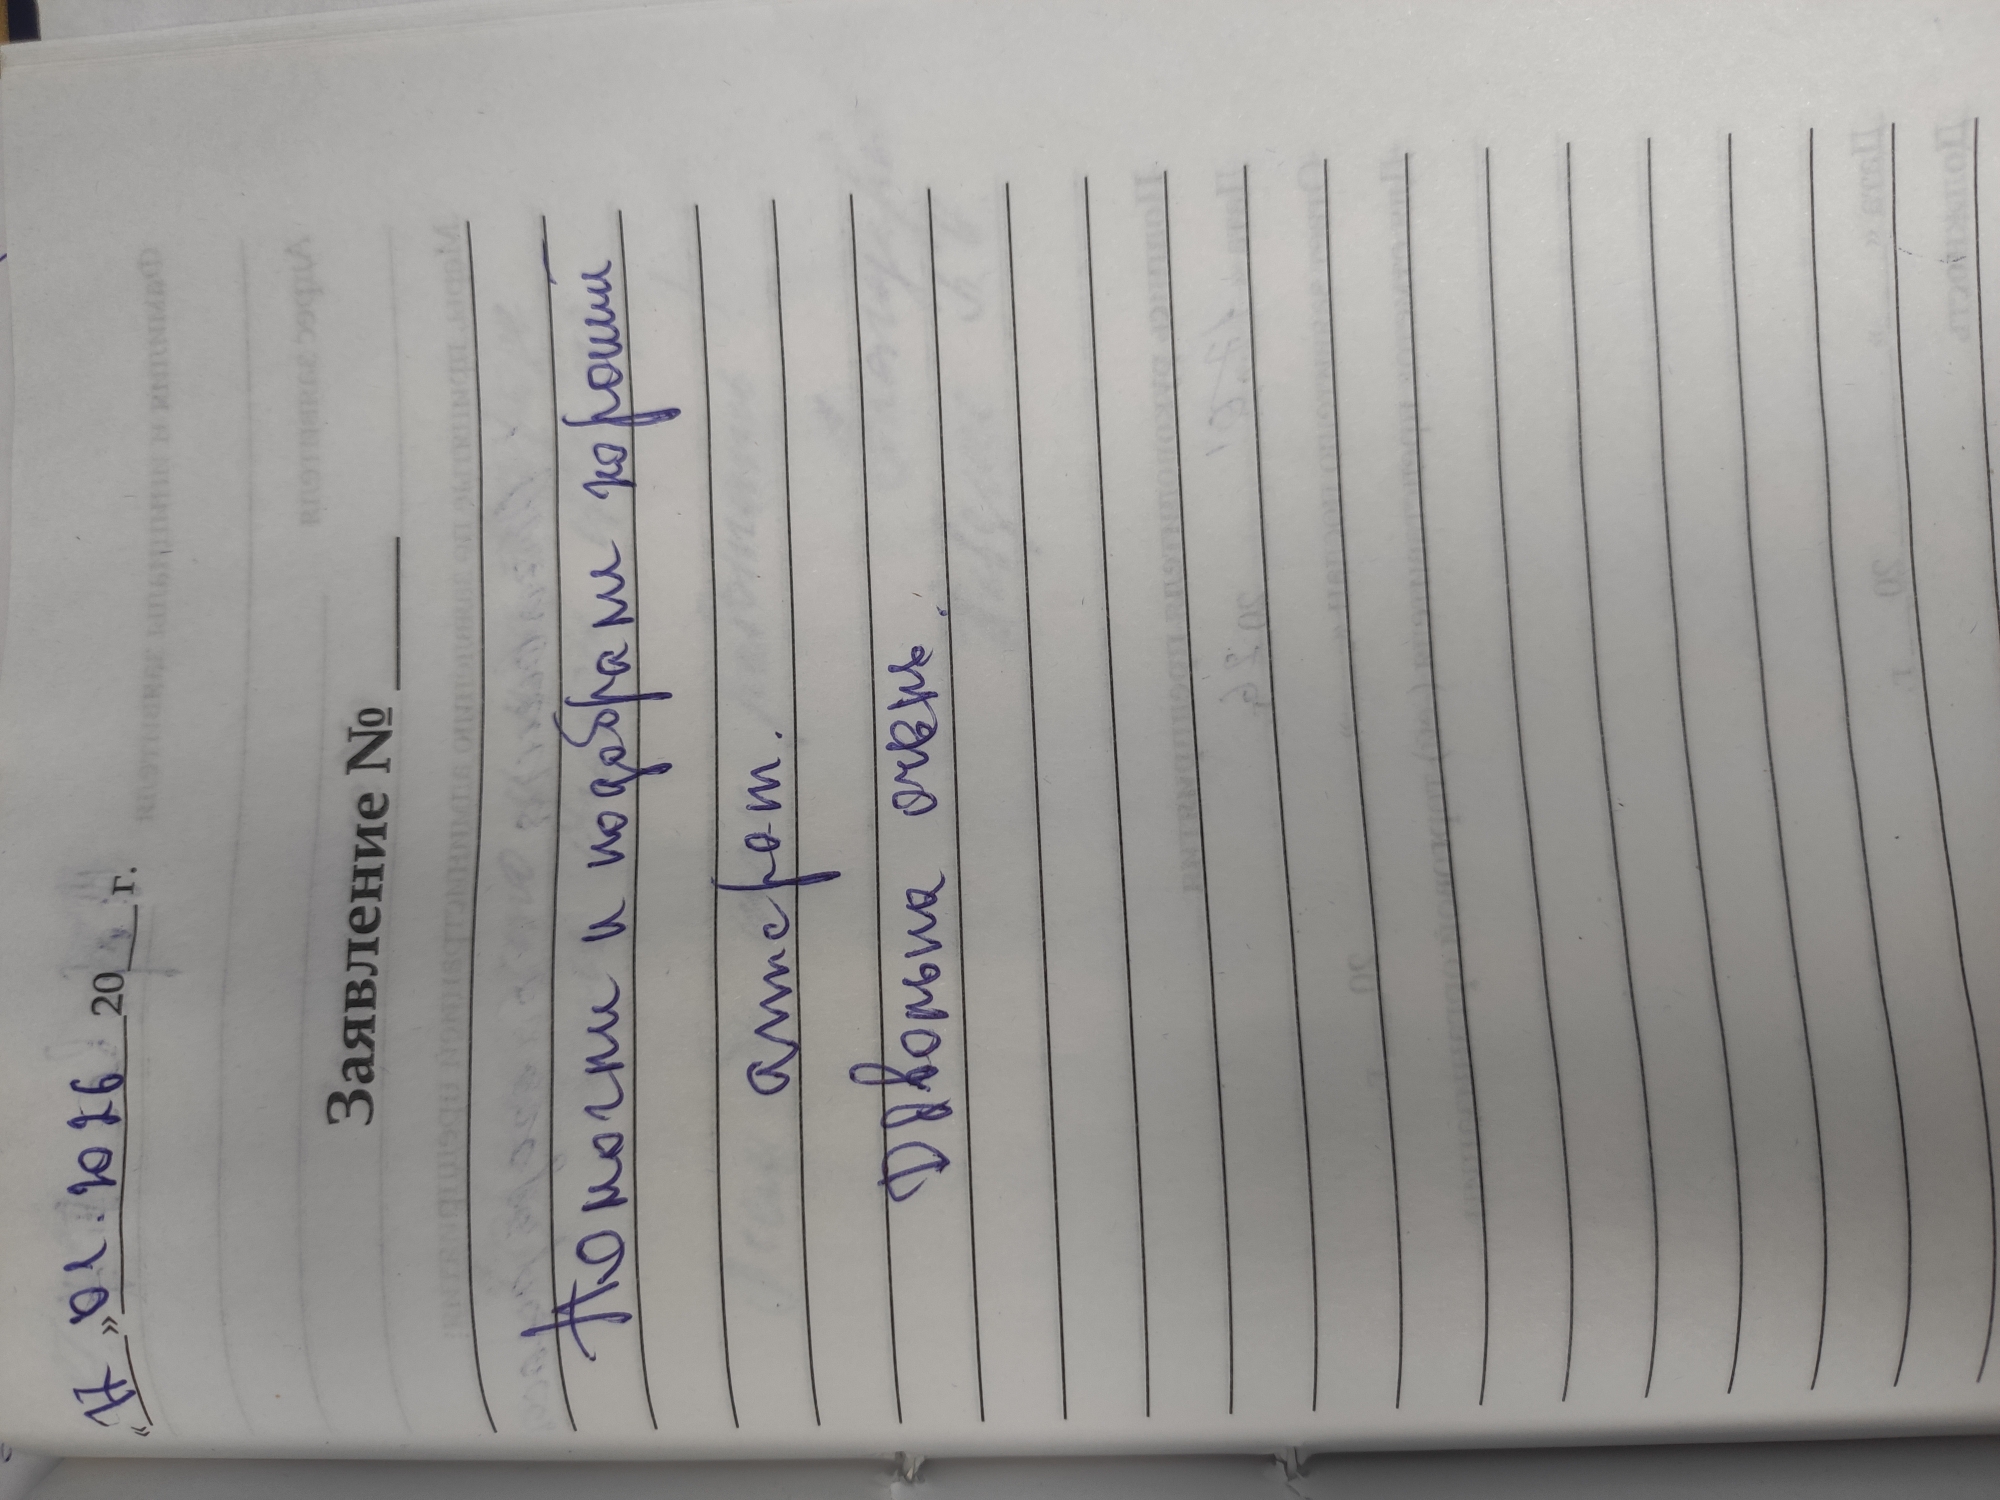 «17» 01.2026 20___г.
Заявление № ____
Помогли и подобрали хороший
аппарат.
Довольна очень.